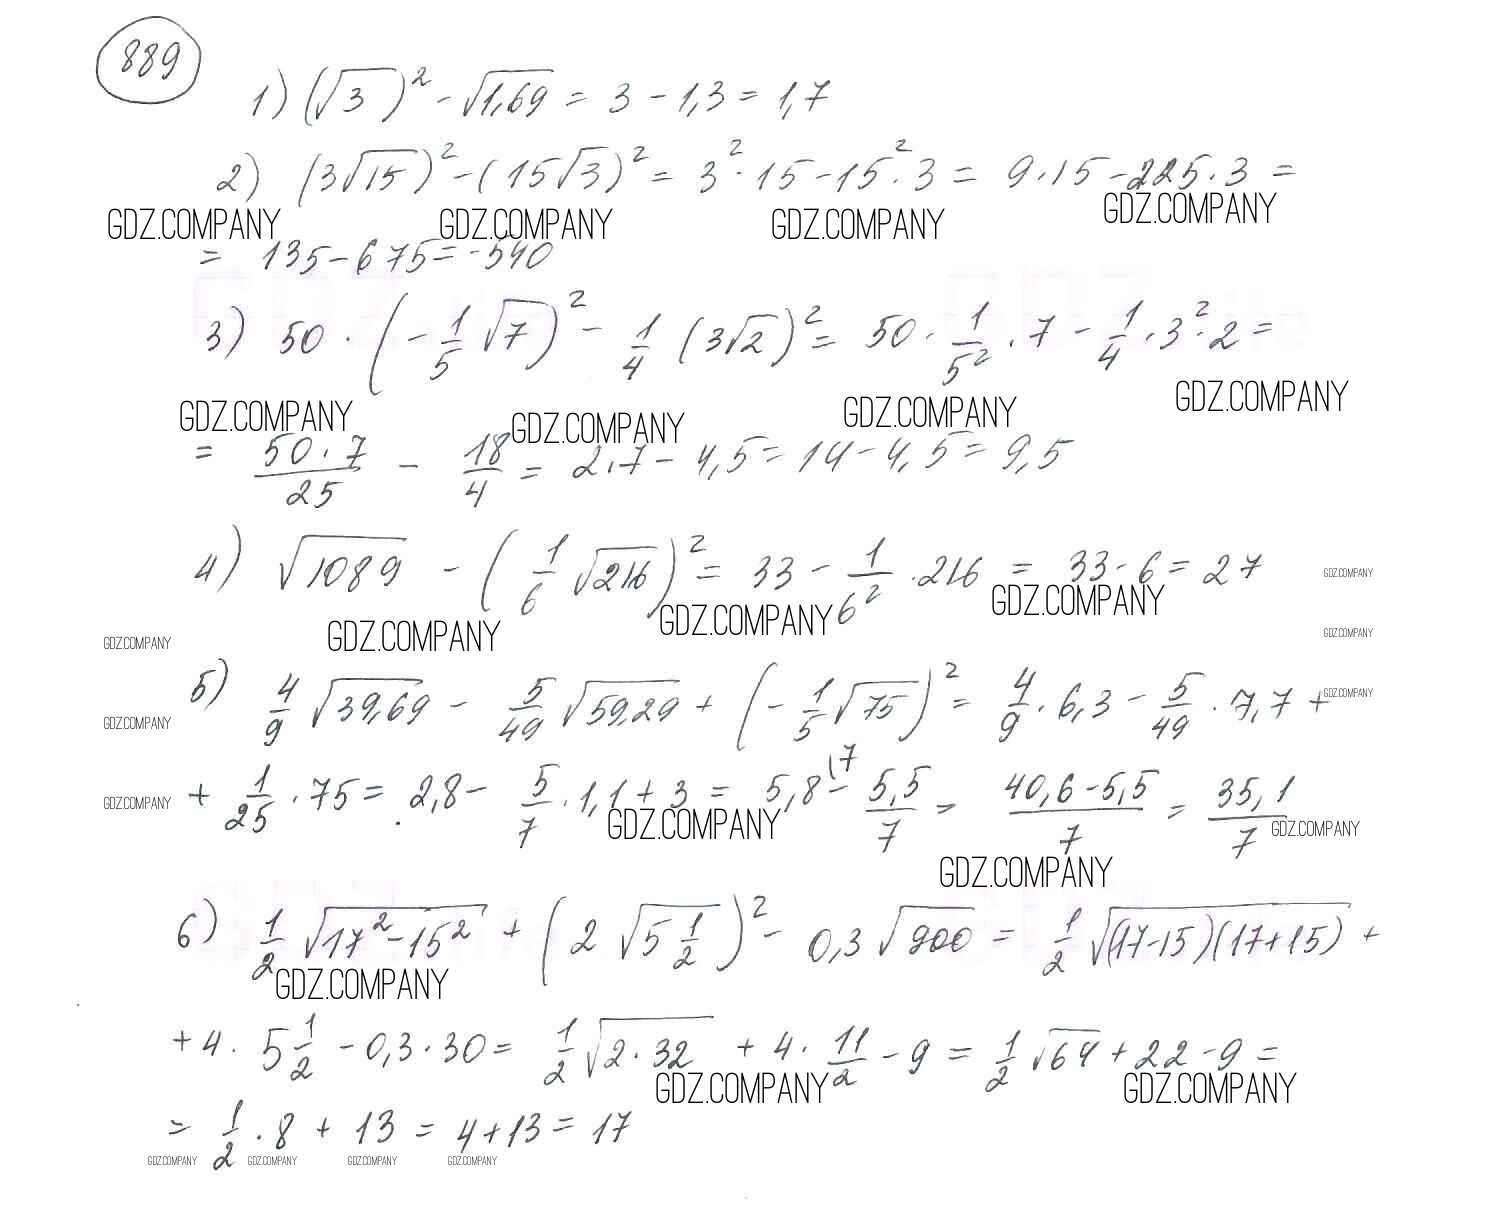 889
1) (√3)² - √1,69 = 3 - 1,3 = 1,7
2) (3√15)² - (15√3)² = 3² · 15 - 15² · 3 = 9 · 15 - 225 · 3 =
GDZ.COMPANY GDZ.COMPANY GDZ.COMPANY GDZ.COMPANY
= 135 - 675 = -540
3) 50 · (-1/5 √7)² - 1/4 (3√2)² = 50 · 1/5² · 7 - 1/4 · 3² · 2 =
GDZ.COMPANY GDZ.COMPANY GDZ.COMPANY GDZ.COMPANY
= 50 · 7/25 - 18/4 = 2 · 7 - 4,5 = 14 - 4,5 = 9,5
4) √1089 - (1/6 √216)² = 33 - 1/6² · 216 = 33 - 6 = 27
GDZ.COMPANY
GDZ.COMPANY GDZ.COMPANY GDZ.COMPANY GDZ.COMPANY GDZ.COMPANY
5) 4/9 √39,69 - 5/49 √59,29 + (-1/5 √75)² = 4/9 · 6,3 - 5/49 · 7,7 +
GDZ.COMPANY GDZ.COMPANY
+ 1/25 · 75 = 2,8 - 5/7 · 1,1 + 3 = 5,8 \7 - 5,5/7 = 40,6 - 5,5/7 = 35,1/7
GDZ.COMPANY GDZ.COMPANY GDZ.COMPANY
GDZ.COMPANY
6) 1/2 √17² - 15² + (2 √5 1/2)² - 0,3 √900 = 1/2 √(17-15)(17+15) +
GDZ.COMPANY
+ 4 · 5 1/2 - 0,3 · 30 = 1/2 √2 · 32 + 4 · 11/2 - 9 = 1/2 √64 + 22 - 9 =
GDZ.COMPANY GDZ.COMPANY
= 1/2 · 8 + 13 = 4 + 13 = 17
GDZ.COMPANY GDZ.COMPANY GDZ.COMPANY GDZ.COMPANY